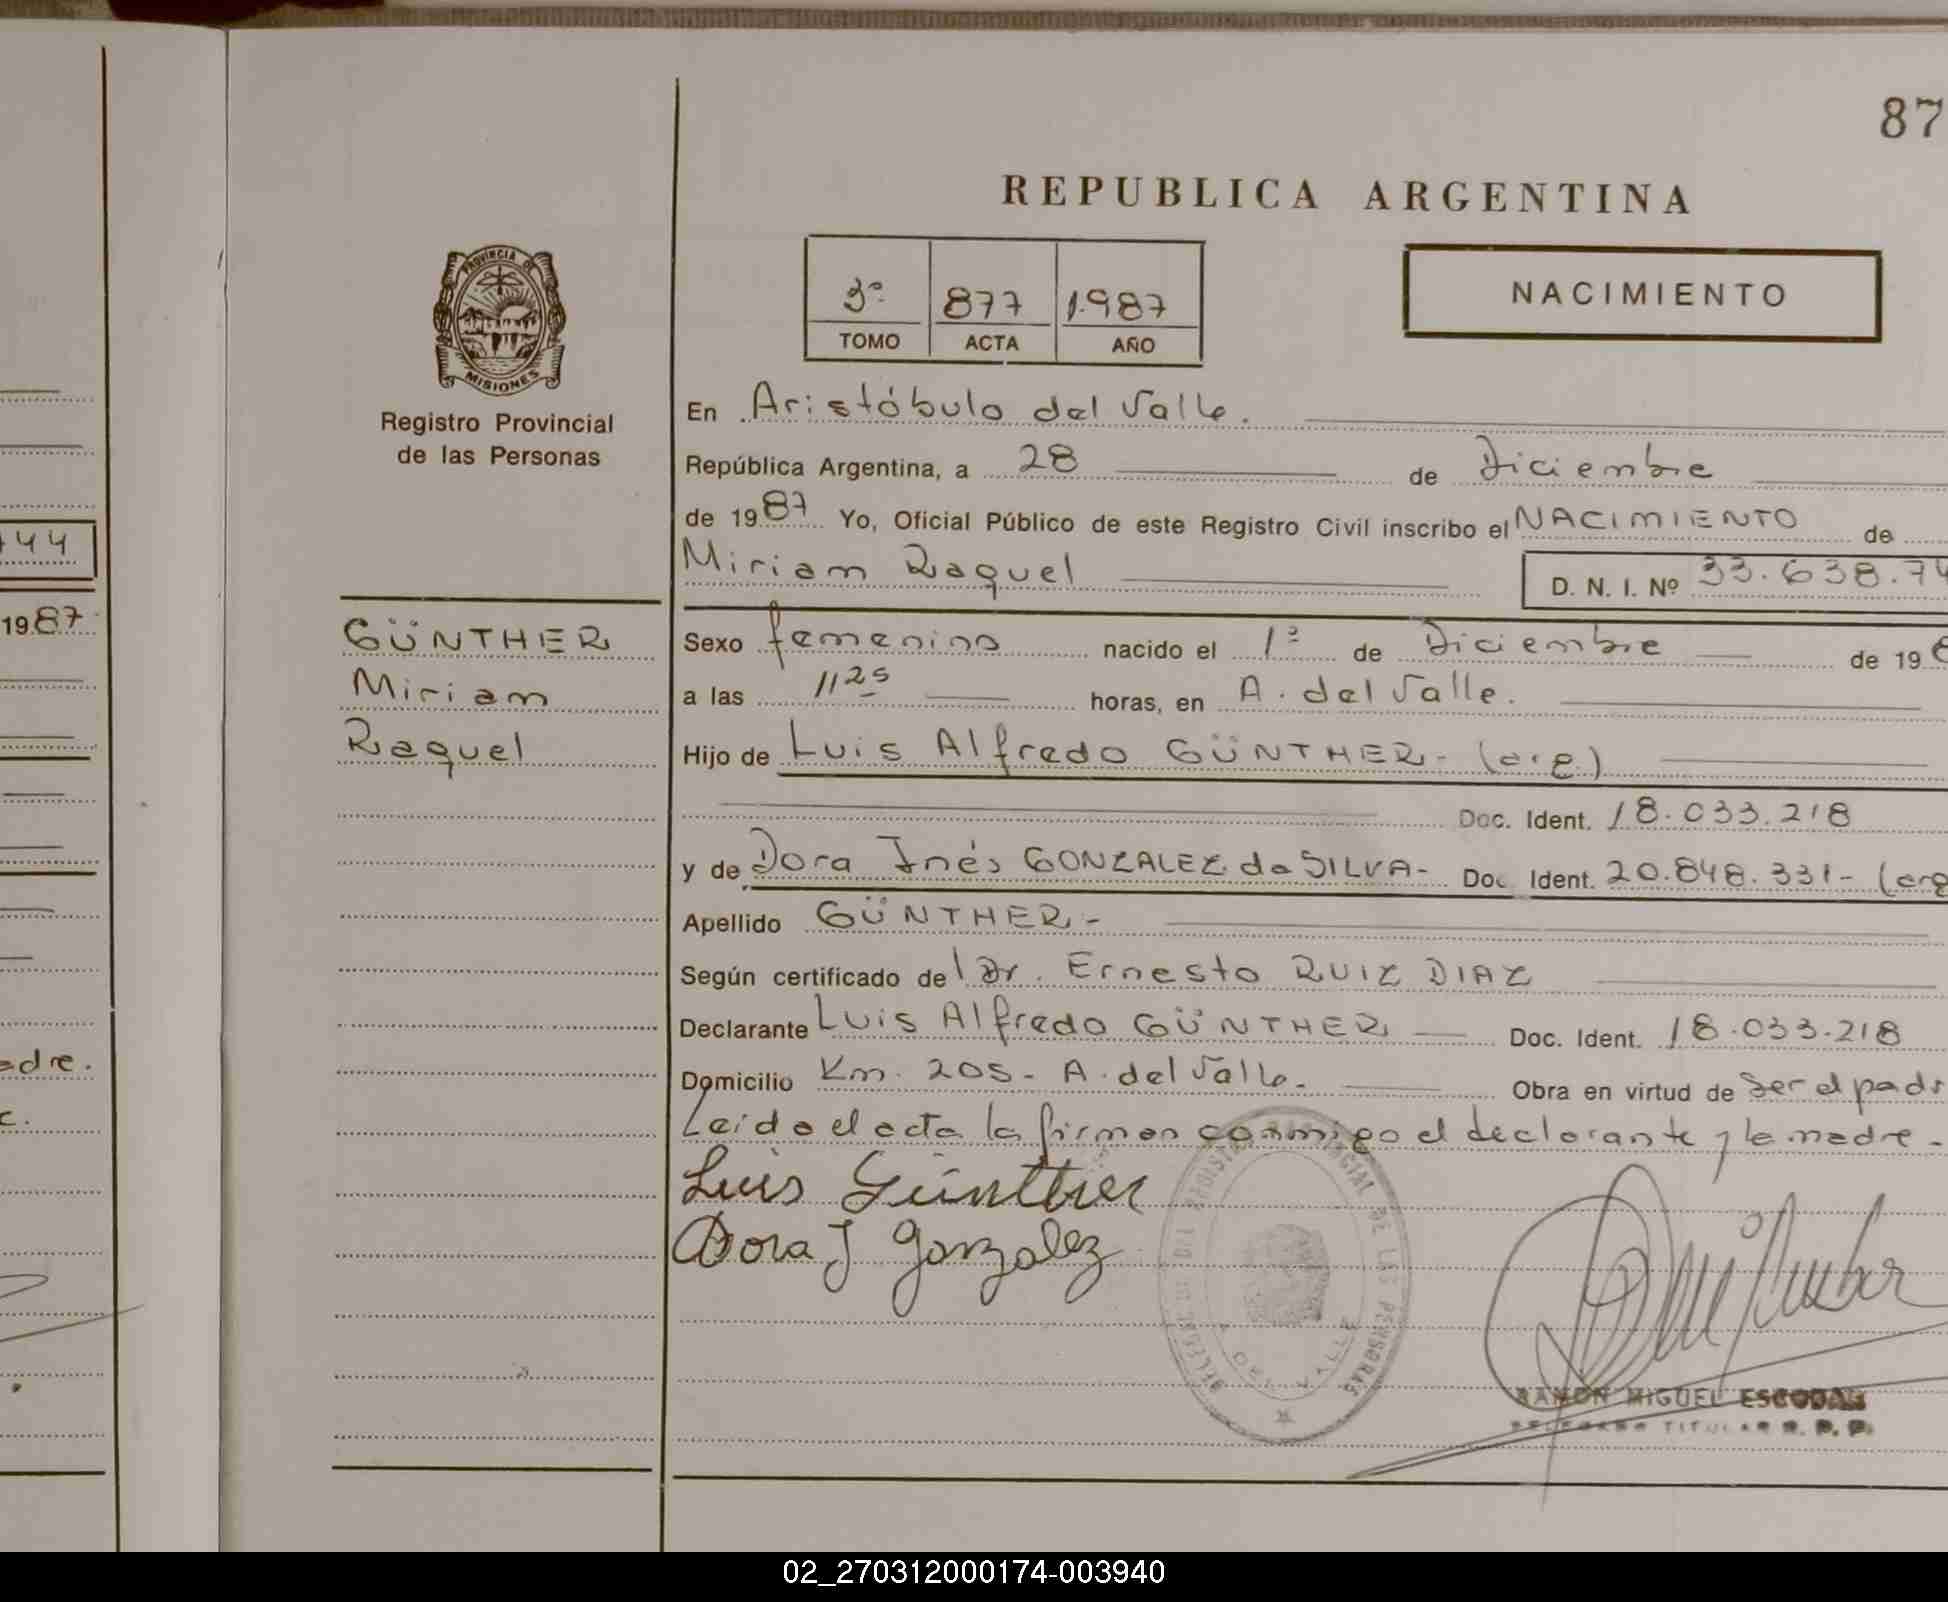 87
REPUBLICA ARGENTINA
PROVINCIA DE
MISIONES
Registro Provincial
de las Personas
3º 877 1.987
TOMO ACTA AÑO
NACIMIENTO
En Aristóbulo del Valle.
República Argentina, a 28 de Diciembre
de 1987 Yo, Oficial Público de este Registro Civil inscribo el NACIMIENTO de
Miriam Raquel D. N. I. Nº 33.638.74
44
1987
GÜNTHER
Miriam
Raquel
Sexo femenino nacido el 1º de Diciembre de 198
a las 11 25 horas, en A. del Valle.
Hijo de Luis Alfredo GÜNTHER - (arg.)
Doc. Ident. 18.033.218
y de Dora Inés GONZALEZ da SILVA - Doc. Ident. 20.848.331 - (arg
Apellido GÜNTHER -
Según certificado del Dr. Ernesto RUIZ DIAZ
Declarante Luis Alfredo GÜNTHER Doc. Ident. 18.033.218
Domicilio Km. 205 - A. del Valle. Obra en virtud de Ser el padr
adre.
Leida el acta la firman conmigo el declarante y la madre -
Luis Günther
Dora I Gonzalez
PROVINCIAL DE LAS PERSONAS
A. DEL VALLE
RAMON MIGUEL ESCOBAR
TITULAR R. P. P.
02_270312000174-003940